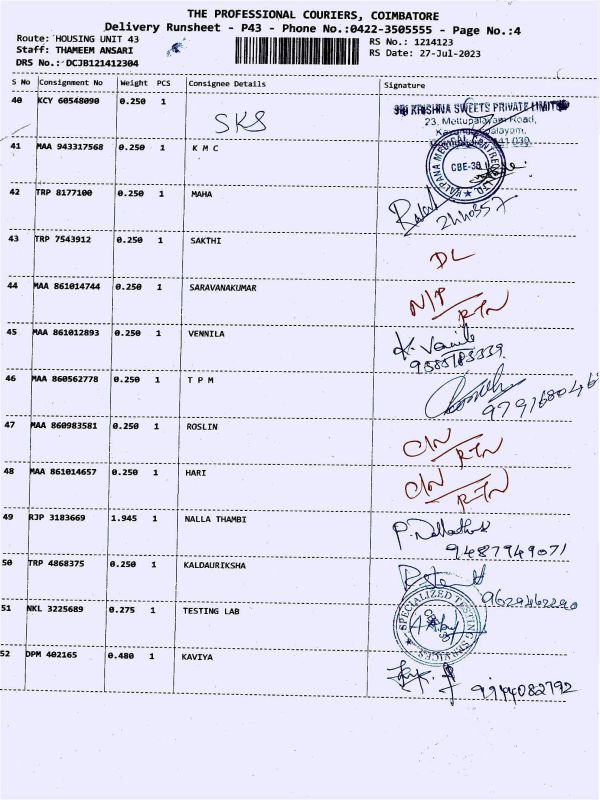 THE PROFESSIONAL COURIERS, COIMBATORE
Delivery Runsheet - P43 - Phone No.:0422-3505555 - Page No.:4
Route: HOUSING UNIT 43
Staff: THAMEEM ANSARI
DRS No.: DCJB121412304
RS No.: 1214123
RS Date: 27-Jul-2023
S No Consignment No Weight PCS Consignee Details Signature
40 KCY 60548090 0.250 1
SKS
SRI KRISHNA SWEETS PRIVATE LIMITED
23, Mettupalayam Road,
41 MAA 943317568 0.250 1 K M C
KALPANA MEDICAL CENTRE
CBE-38
42 TRP 8177100 0.250 1 MAHA
2440357
43 TRP 7543912 0.250 1 SAKTHI
DL
44 MAA 861014744 0.250 1 SARAVANAKUMAR
N/P
RTN
45 MAA 861012893 0.250 1 VENNILA
K. Vennila
46 MAA 860562778 0.250 1 T P M
47 MAA 860983581 0.250 1 ROSLIN
C/N
RTN
48 MAA 861014657 0.250 1 HARI
C/N
RTN
49 RJP 3183669 1.945 1 NALLA THAMBI
9487949071
50 TRP 4868375 0.250 1 KALDAURIKSHA
9629462290
51 NKL 3225689 0.275 1 TESTING LAB
SPECIALIZED TESTING SERVICES
52 DPM 402165 0.480 1 KAVIYA
9944082792